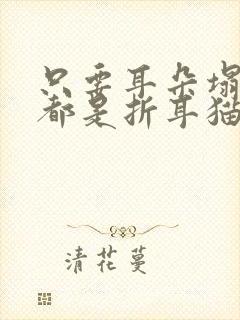 只要耳朵塌
都是折耳猫
清花蔓